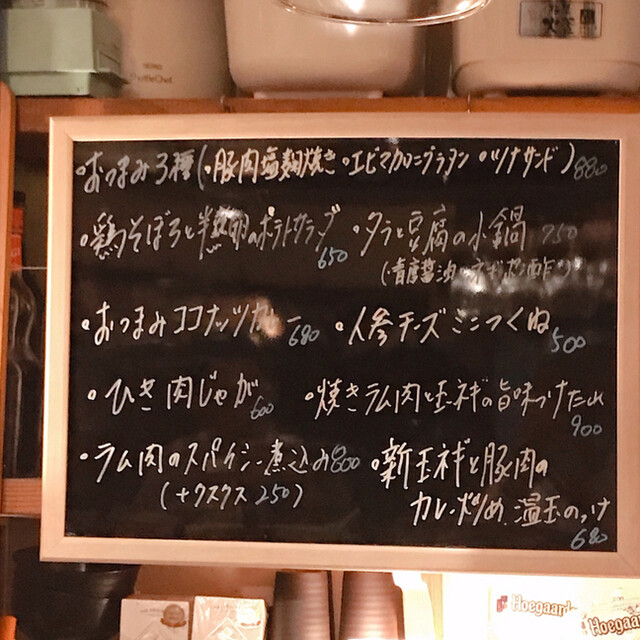 ・おつまみ3種(・豚肉塩麹焼き・エビマカロニグラタン・ツナサンド) 880
・鶏そぼろと半熟卵のポテトサラダ 650
・タラと豆腐の小鍋 750
・おつまみココナッツカレー 680
・人参チーズミニつくね 500
・ひき肉じゃが 600
・焼きラム肉と玉ネギの旨味づけ 900
・ラム肉のスパイシー煮込み 800
(+クスクス 250)
・新玉ネギと豚肉の
カレー炒め 温玉のっけ
680
Hoegaard
Hoegaar